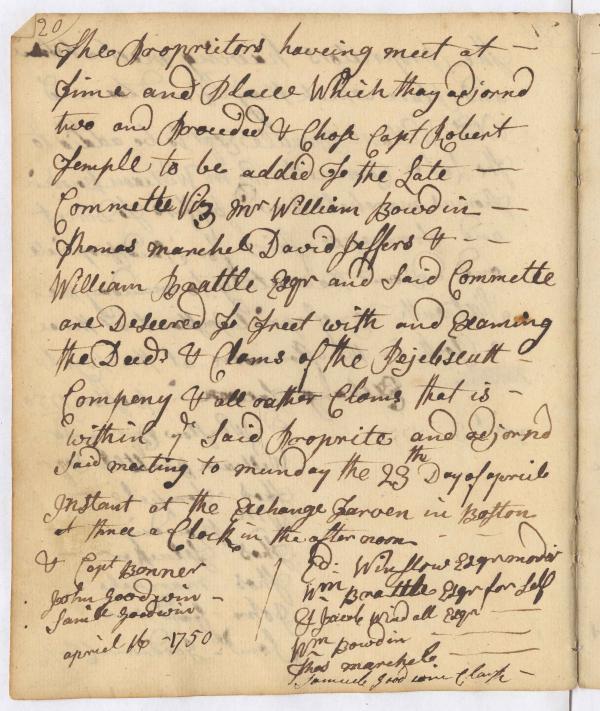 20
The Proprietors haveing meet at —
Time and Place Which thay adjornd
two and Proceded & Chose Capt Robert
Temple to be added To the Late —
Commette Viz Mr William Bowdin —
Thomas marchel David Jeffers & - -
William Brattle Esqr and Said Commette
are Deseered To Treet with and Examing
the Deeds & Clams of the Pejebscutt
Compeny & all oather Clams that is —
within ye Said Proprite and adjornd
Said meeting to munday the 23th Day of april
Instant at the Exchange Tarven in Boston
at three a Clock in the afternoon
& Capt Bonner
John Goodwin —
Samll Goodwin
april 16 - 1750
Ed: Winslow Esqr modr
Wm Brattle Esqr for Self
& Jacob Wendall Esqr —
Wm Bowdin —
Thos marchel —
Samuel Goodwin Clark —